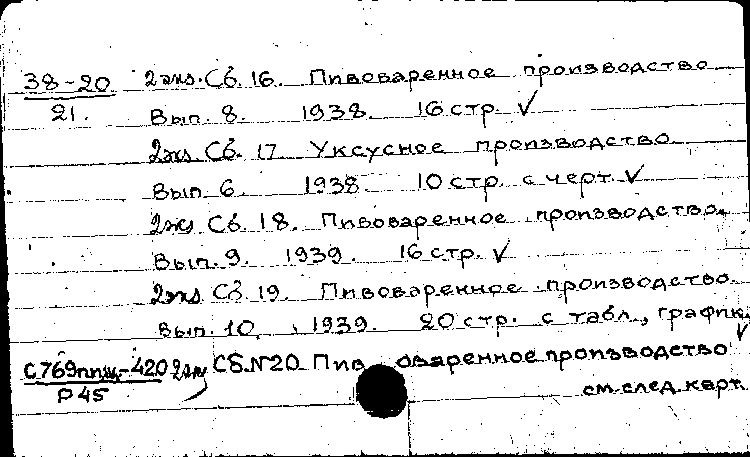 38-20 2экз. Сб. 16. Пивоваренное производство
21. Вып. 8. 1938. 16 стр. ✓
2экз. Сб. 17 Уксусное производство
Вып. 6. 1938. 10 стр. с черт. ✓
2экз. Сб. 18. Пивоваренное производство.
Вып. 9. 1939. 16 стр. ✓
2экз. Сб. 19. Пивоваренное производство.
Вып. 10. 1939. 20 стр. с табл., график. ✓
2экз Сб. №20 Пивоваренное производство
Р45 см. след. карт.